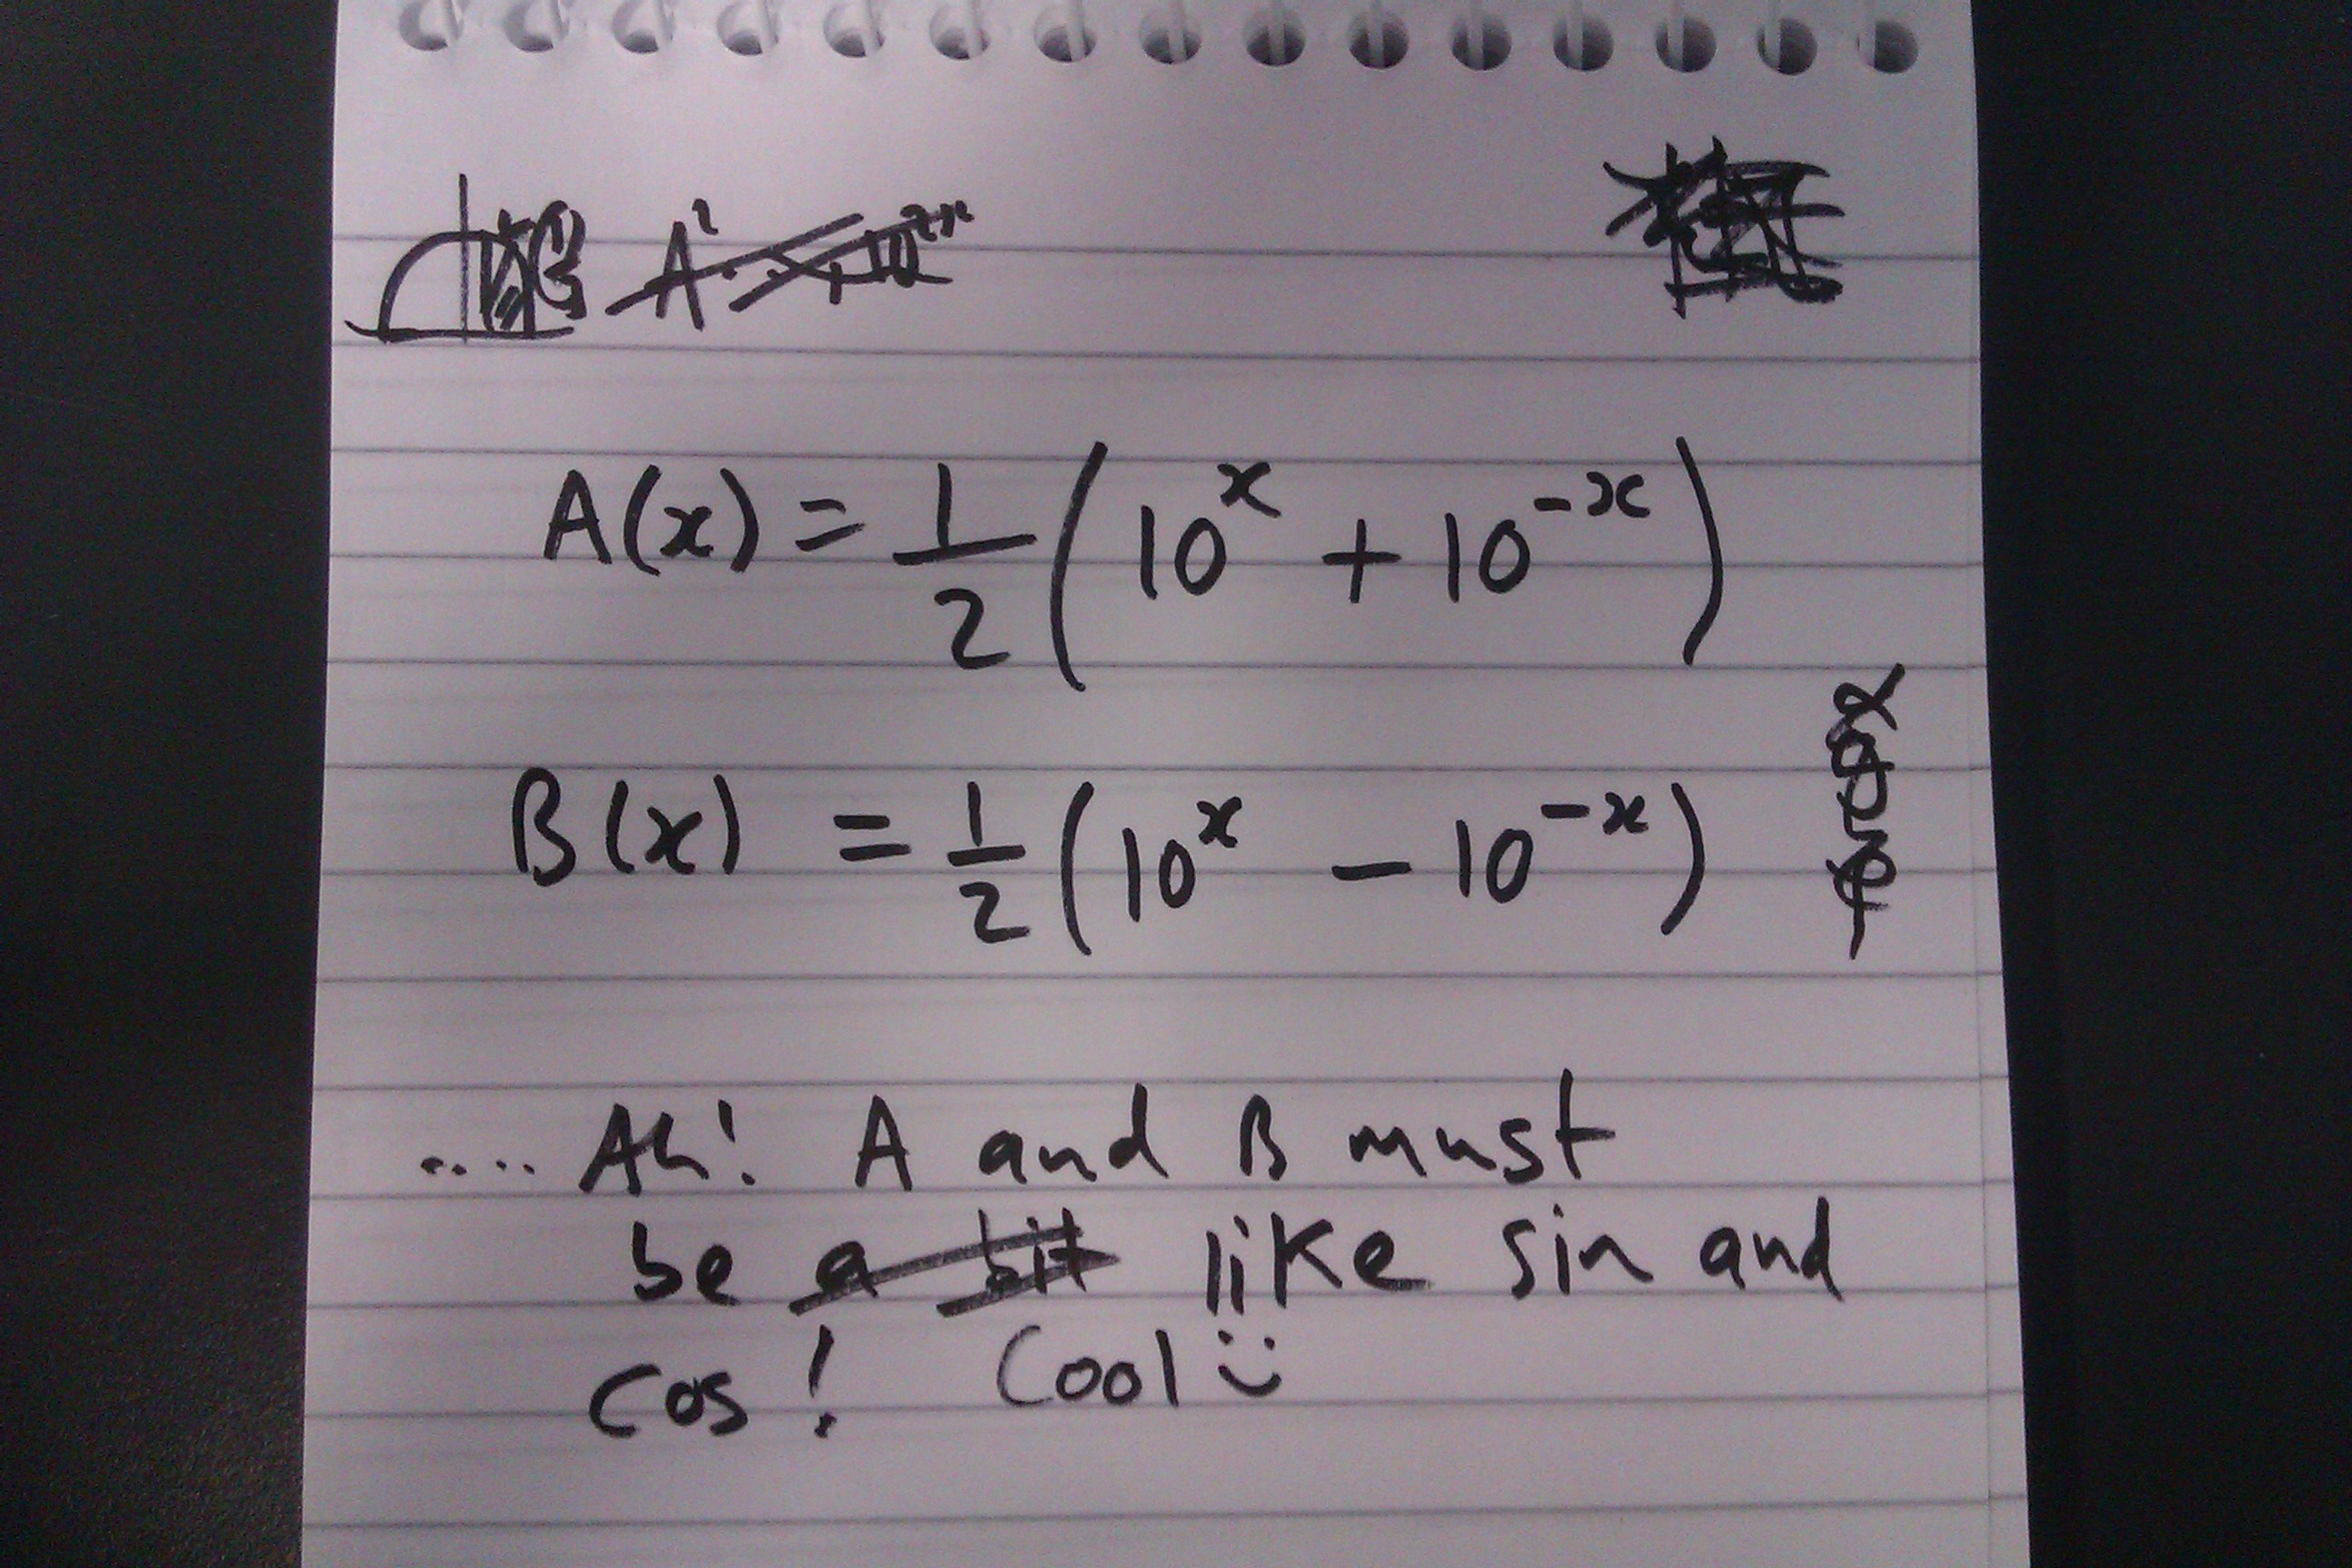 A² 10²ˣ
A(x) = 1/2 (10ˣ + 10⁻ˣ)
B(x) = 1/2 (10ˣ - 10⁻ˣ)
.... Ah! A and B must
be a bit like sin and
cos! Cool :)